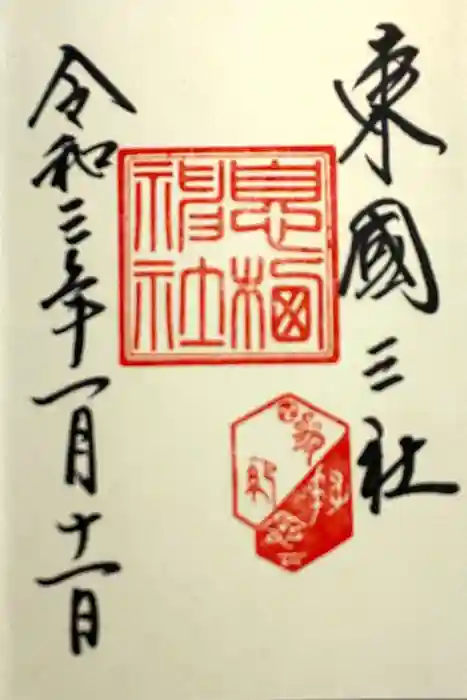 東國三社
息栖
神社
令和三年一月十一日